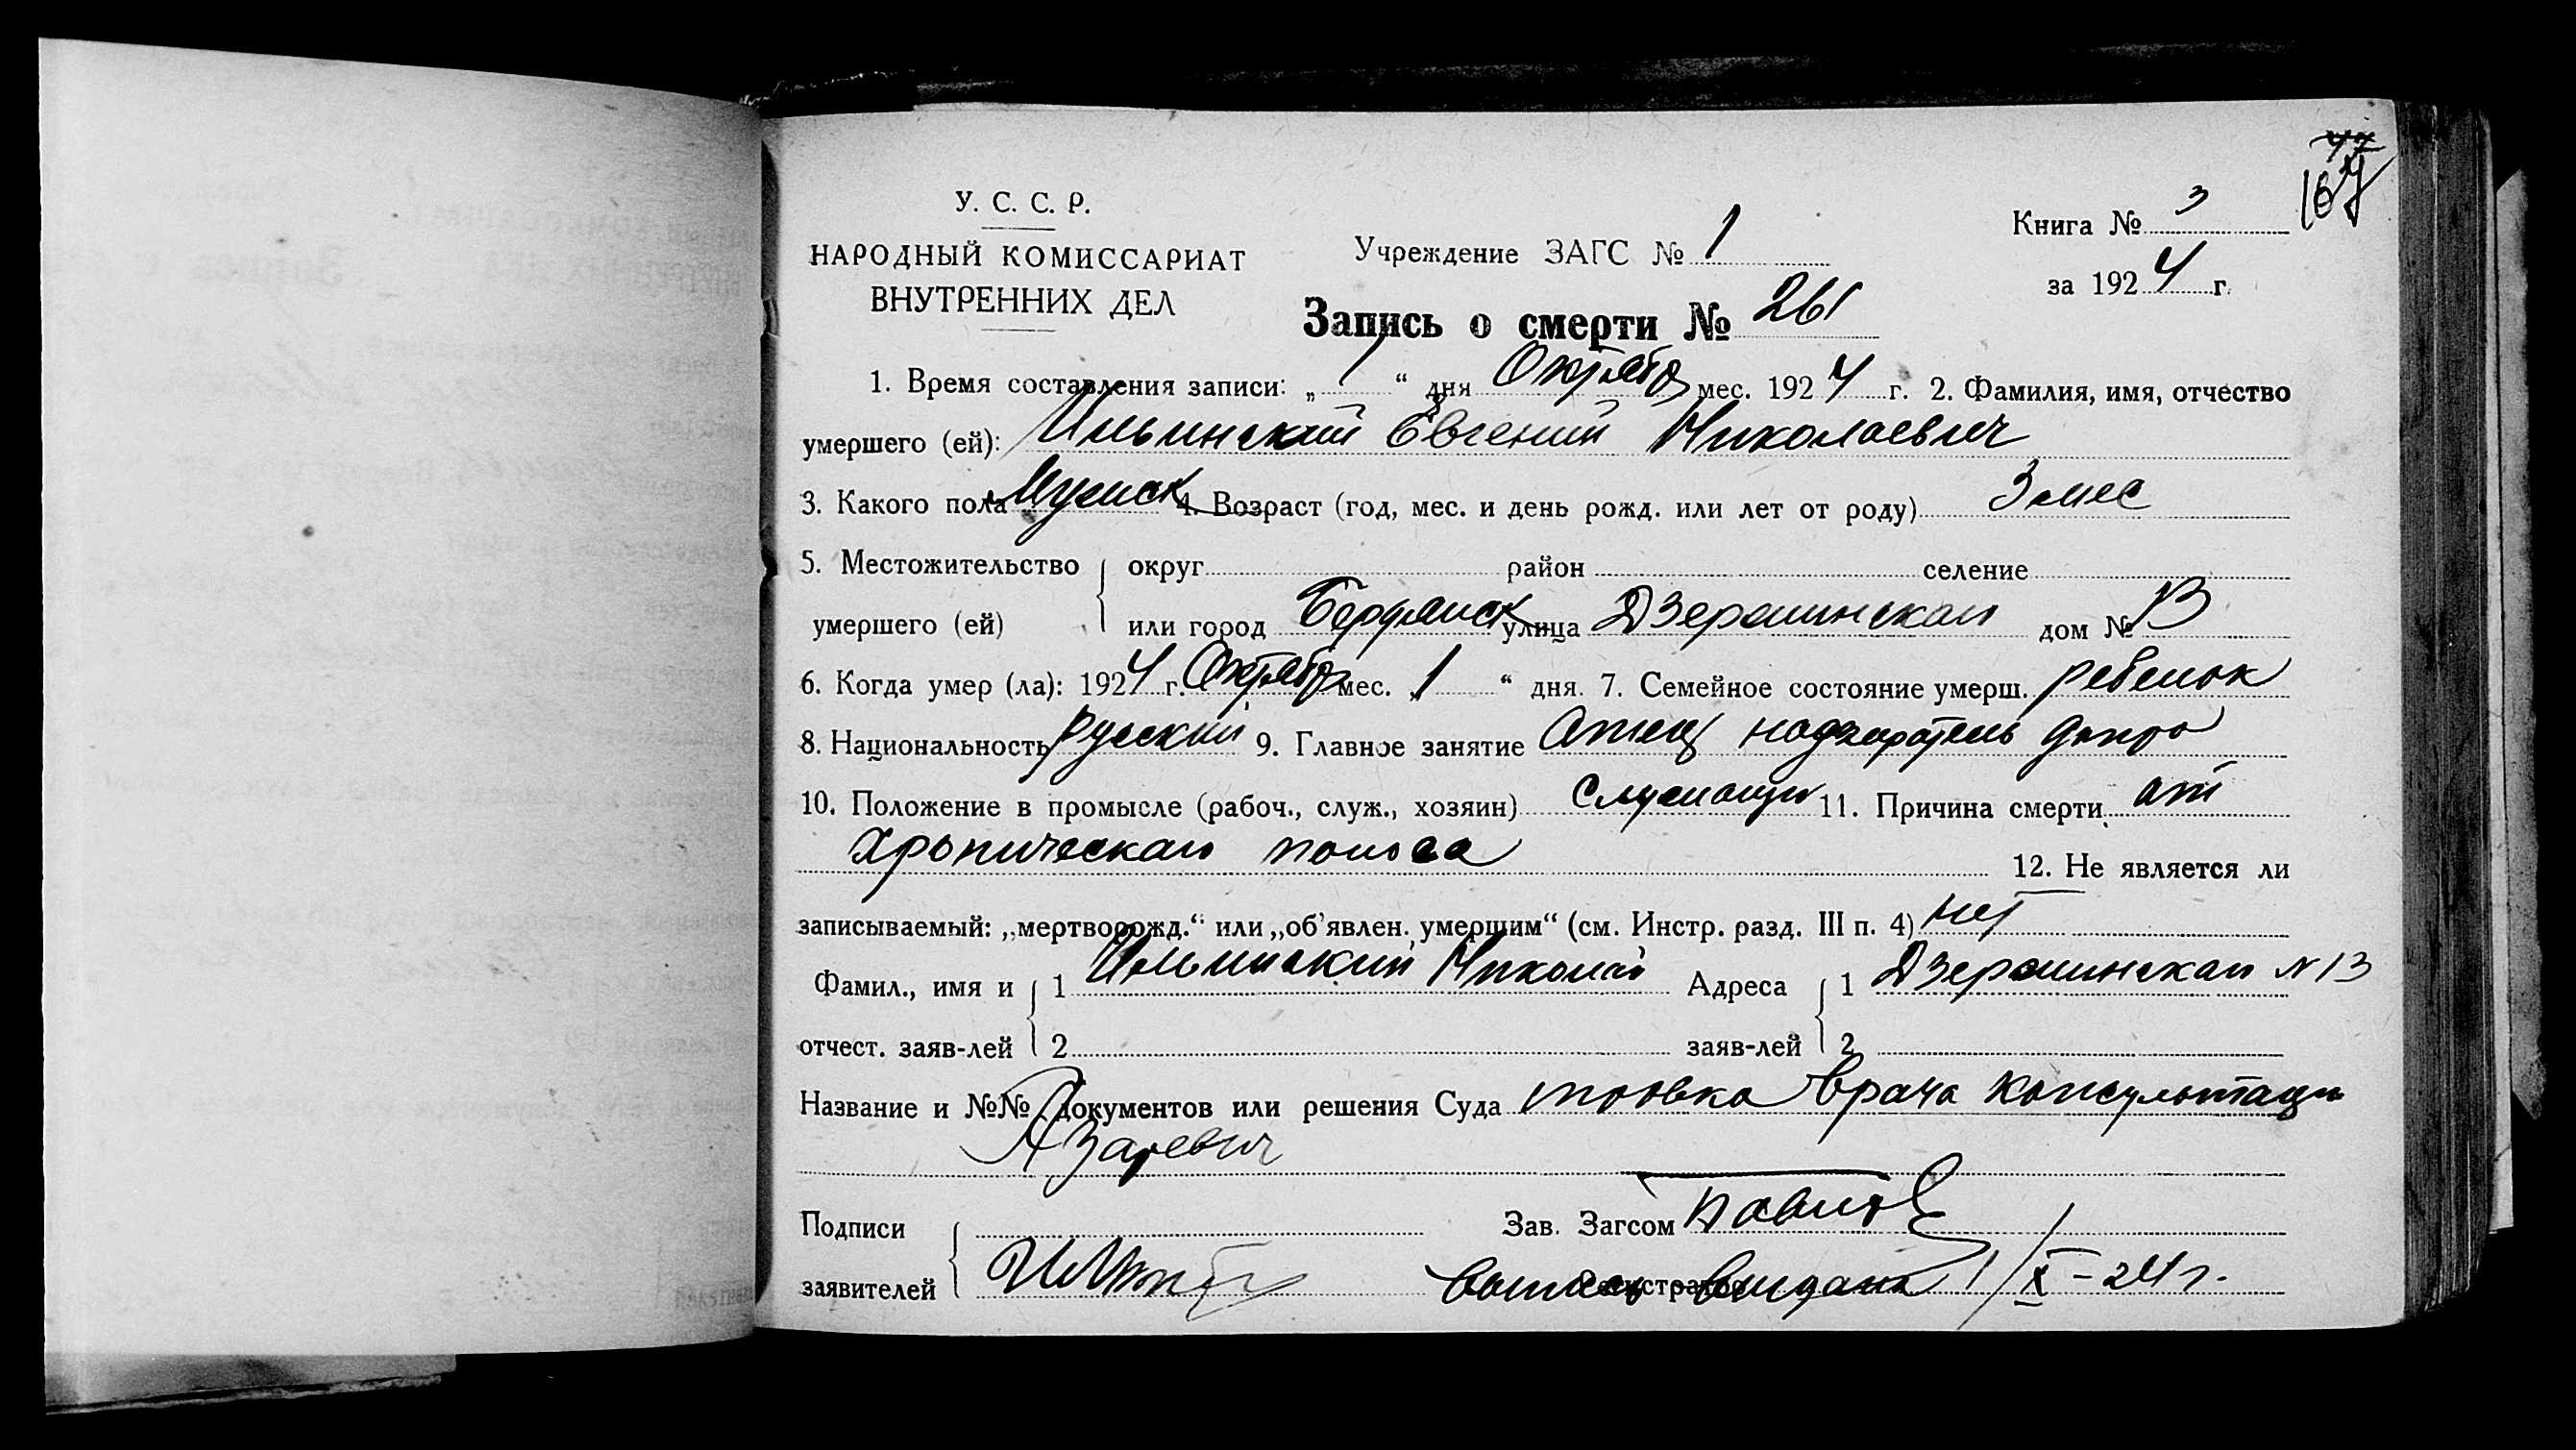 47
167
У. С. С. Р.
НАРОДНЫЙ КОМИССАРИАТ
ВНУТРЕННИХ ДЕЛ
Учреждение ЗАГС № 1
Книга № 3
за 1924 г.
Запись о смерти № 261
1. Время составления записи: „ 1 “ дня Октября мес. 1924 г. 2. Фамилия, имя, отчество
умершего (ей): Ильинский Евгений Николаевич
3. Какого пола Мужск 4. Возраст (год, мес. и день рожд. или лет от роду) 3 мес
5. Местожительство округ район селение
умершего (ей) или город Бердянск улица Дзержинская дом № 13
6. Когда умер (ла): 1924 г. Октября мес. „ 1 “ дня. 7. Семейное состояние умерш. ребенок
8. Национальность русский 9. Главное занятие Отец надзиратель допра
10. Положение в промысле (рабоч., служ., хозяин) Служащий 11. Причина смерти от
Хронического поноса 12. Не является ли
записываемый: „мертворожд.“ или „об’явлен. умершим“ (см. Инстр. разд. III п. 4) нет
Фамил., имя и 1 Ильинский Николай Адреса 1 Дзержинская N 13
отчест. заяв-лей 2 заяв-лей 2
Название и №№ документов или решения Суда врача консультации
Азаревич
Подписи Зав. Загсом Павлов
заявителей Регистратор выдана 1/X-24 г.